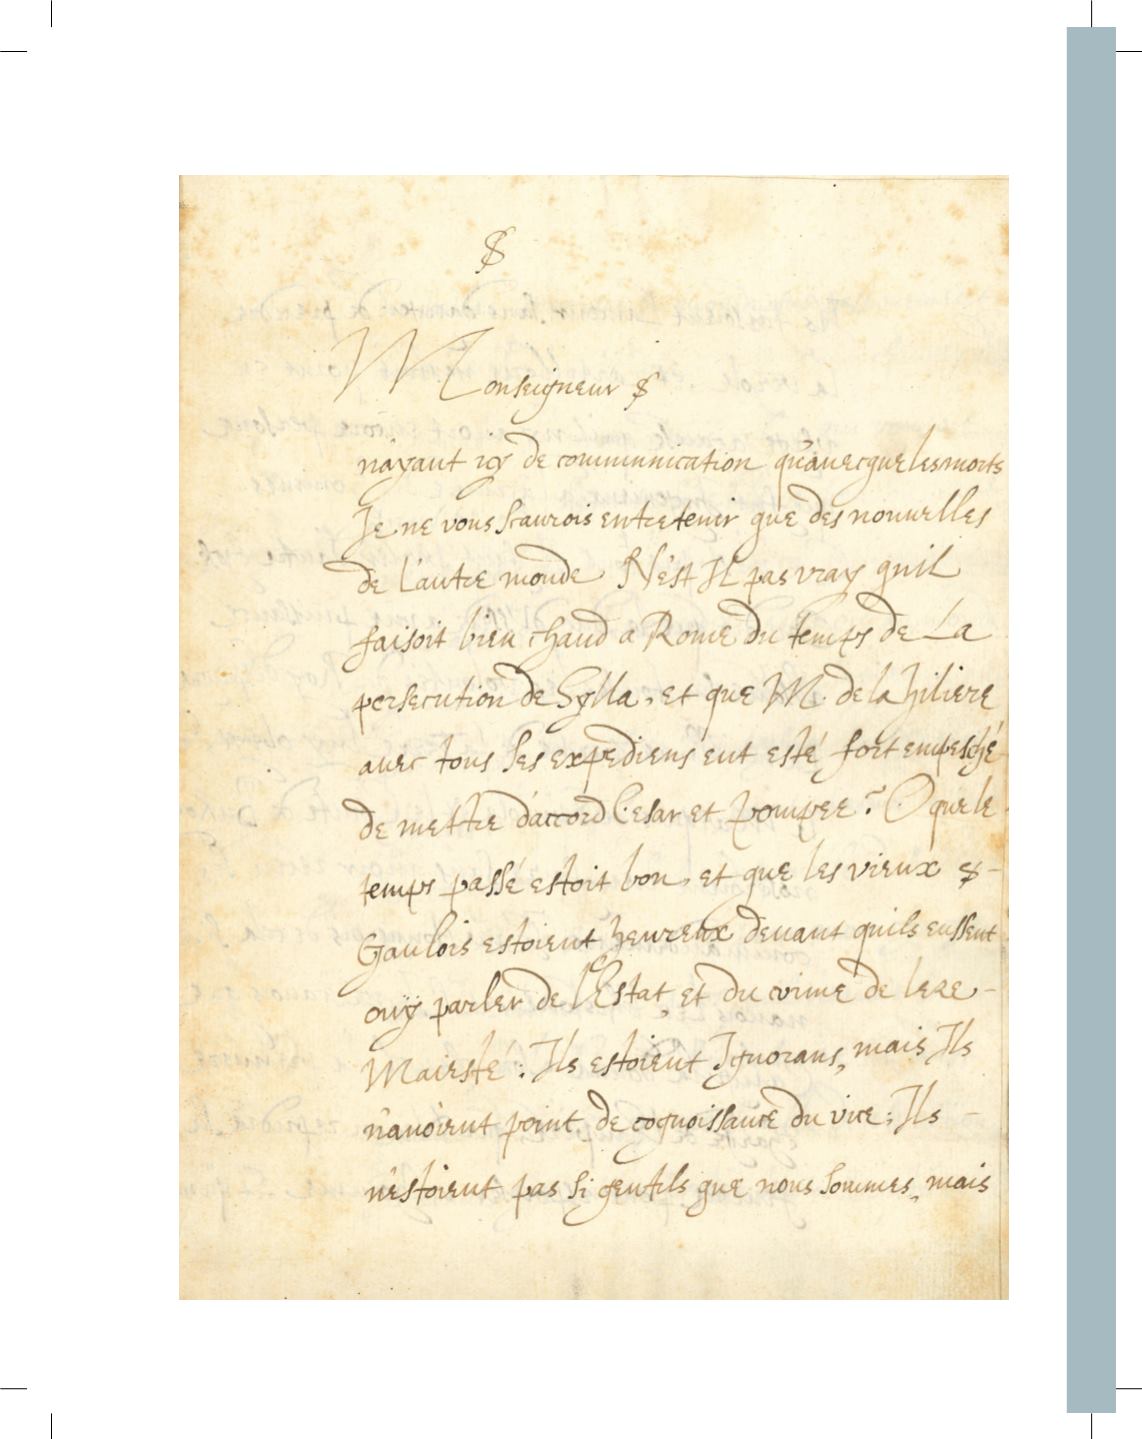 $
Monseigneur $
n'ayant icy de communication qu'auecque les morts
Je ne vous scaurois entretenir que des nouuelles
de l'autre monde N'est Il pas vray qu'il
faisoit bien chaud a Rome du temps de La
persecution de Sylla, et que M. de la hiliere
auec tous ses expediens eut esté fort empesché
de mettre d'accord Cesar et Pompee? O que le
temps passé estoit bon, et que les vieux $ -
Gaulois estoient heureux deuant quils eussent
ouÿ parler de l'Estat, et du crime de leze -
Maiesté: Ils estoient Ignorans, mais Ils
n'auoient point de cognoissance du vice; Ils -
n'estoient pas si gentils que nous sommes, mais